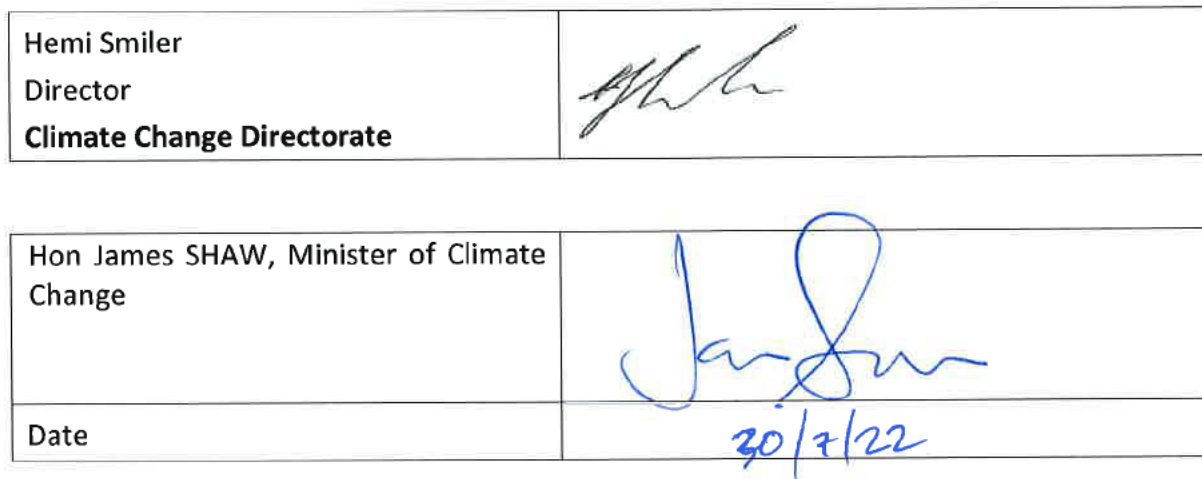 Hemi Smiler
Director
Climate Change Directorate
Hon James SHAW, Minister of Climate
Change
Date
30/7/22